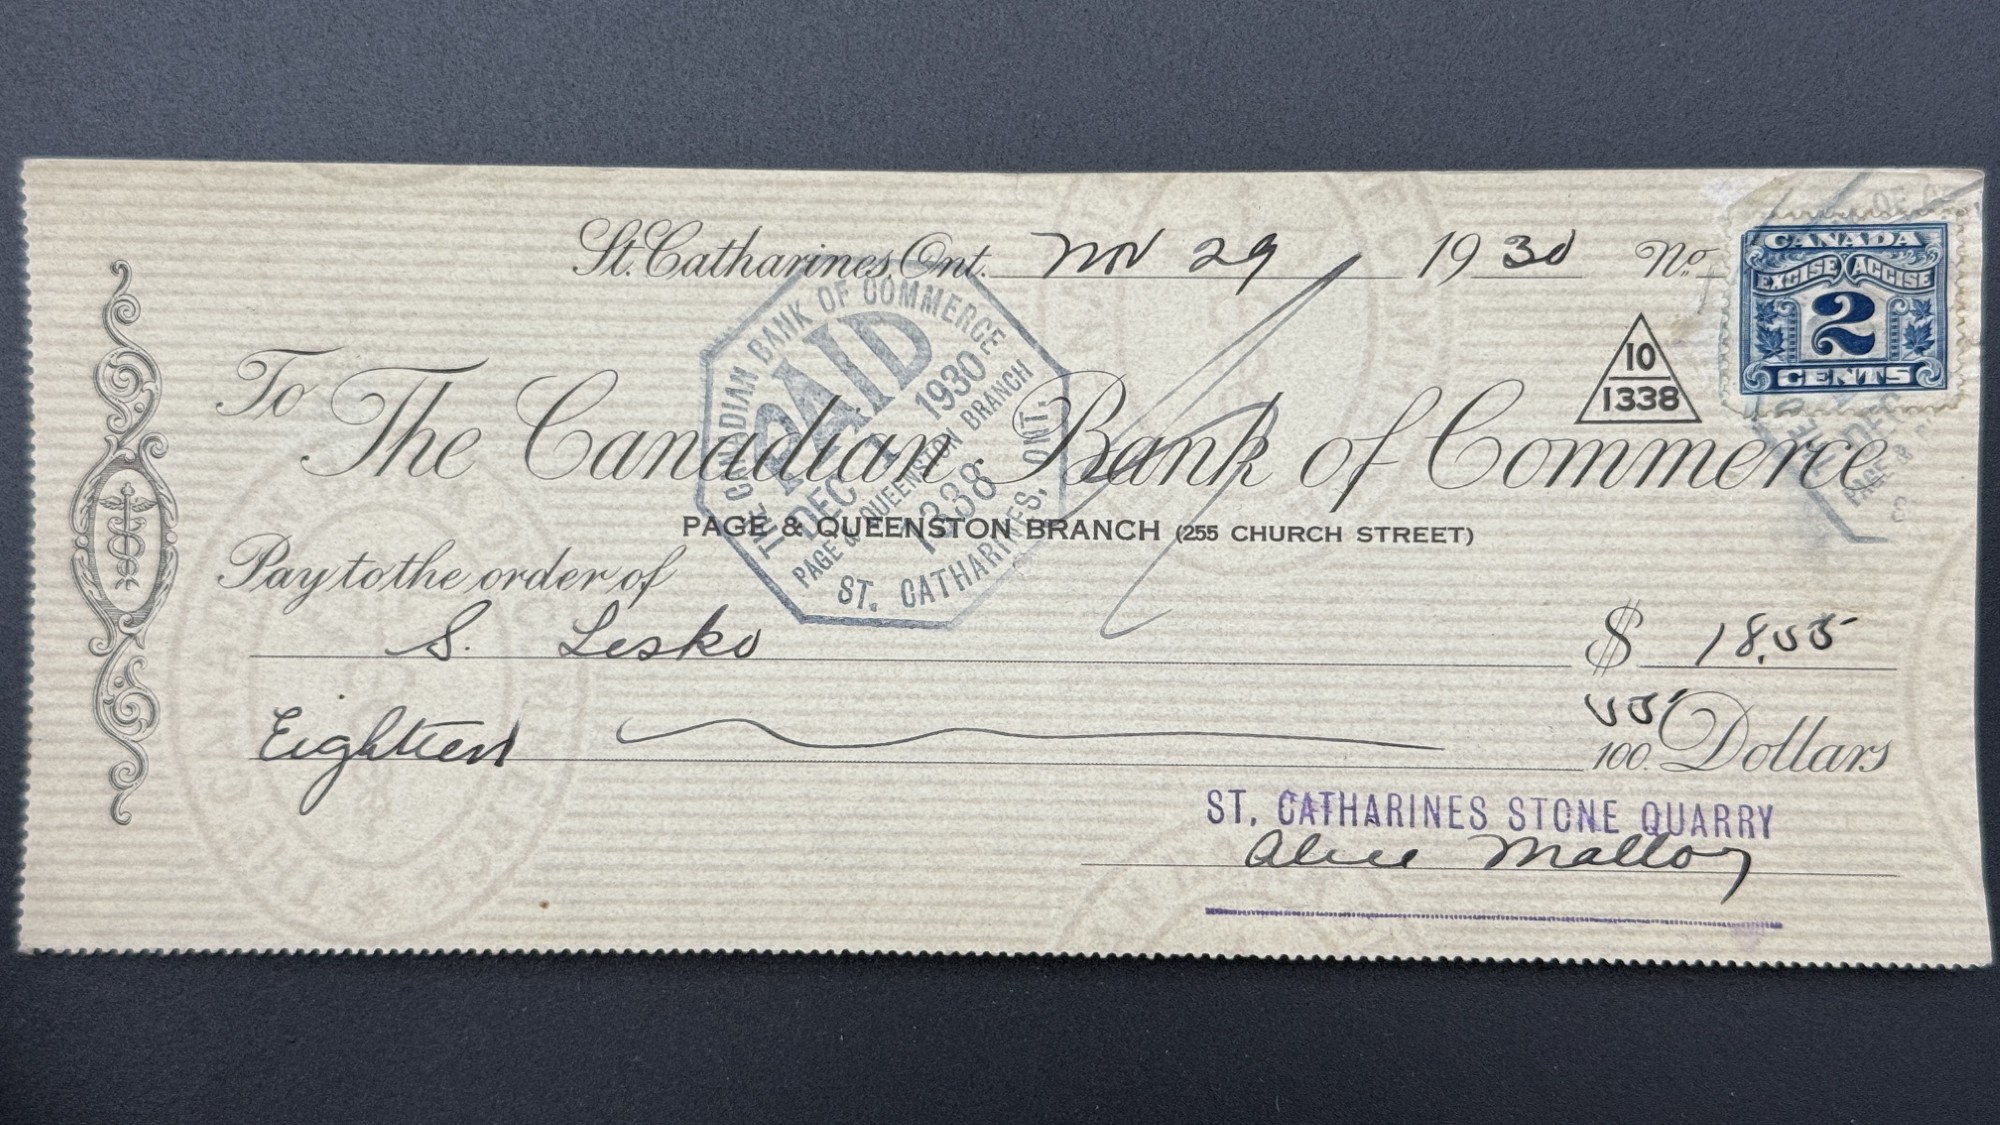 St. Catharines, Ont. Nov 29 1930 No.
CANADA
EXCISE ACCISE
2
CENTS
10
1338
To The Canadian Bank of Commerce
PAGE & QUEENSTON BRANCH (255 CHURCH STREET)
THE CANADIAN BANK OF COMMERCE
PAID
DEC 1 1930
PAGE & QUEENSTON BRANCH
1338
ST. CATHARINES, ONT.
Pay to the order of
S. Lesko $ 18.00
Eighteen 00/100 Dollars
ST. CATHARINES STONE QUARRY
Alice Malloy